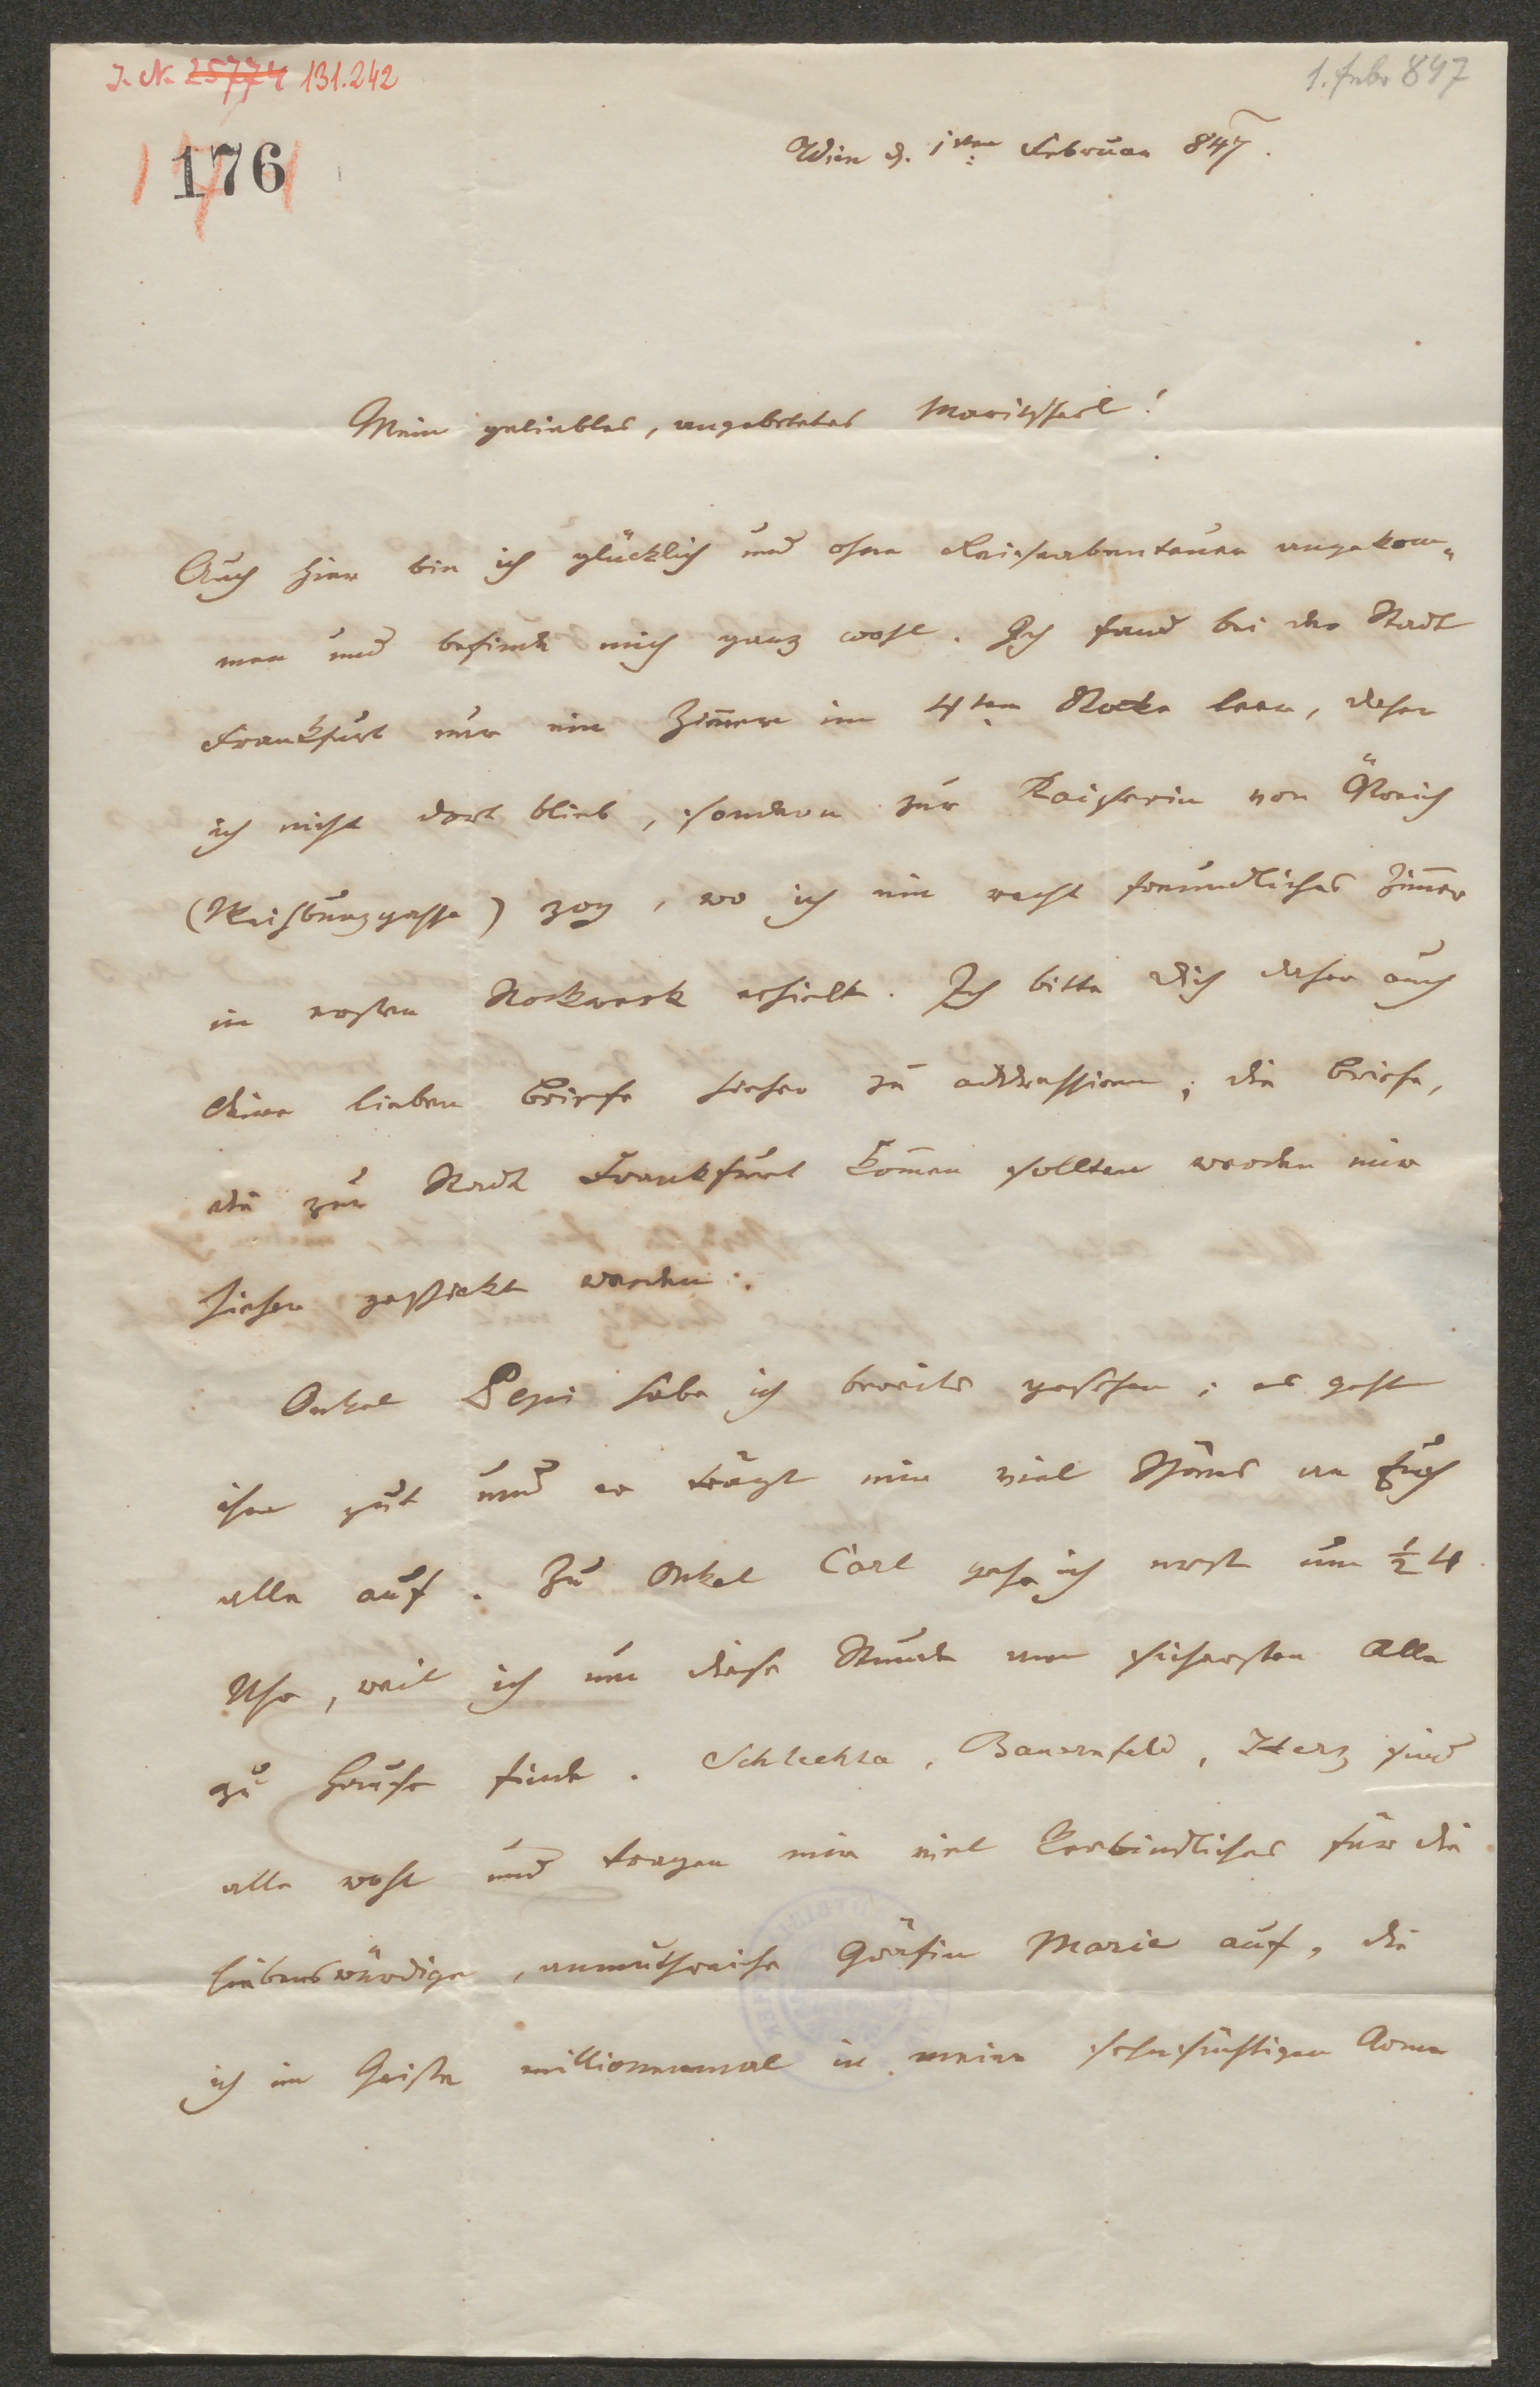 J. N. 25774 131.242
1. Febr 847
176
Wien d. 1ten Februar 847.
Mein geliebtes, angebetetes Maritscherl!
Auch hier bin ich glücklich und ohne Reiseabenteuer angekom„
men und befinde mich ganz wohl. Ich fand bei der Stadt
Frankfurt nur ein Zimmer im 4ten Stocke leer, daher
ich nicht dort blieb, sondern zur Kaiserin von Östreich
(Weihburggasse) zog, wo ich ein recht freundliches Zimmer
im ersten Stockwerk erhielt. Ich bitte Dich daher auch
Deine lieben Briefe hieher zu addressiren; die Briefe,
die zur Stadt Frankfurt kommen sollten werden mir
hieher geschickt werden.
Onkel Pepi habe ich bereits gesehen; es geht
ihm gut und er trägt mir viel Schönes an Euch
alle auf. Zu Onkel Carl gehe ich erst um ½ 4
Uhr, weil ich um diese Stunde am sichersten Alle
zu Hause finde. Schlechta, Bauernfeld, Herz sind
alle wohl und tragen mir viel Verbindliches für die
liebenswürdige, anmuthreiche Gräfin Marie auf, die
ich im Geiste millionenmal in meine sehnsüchtigen Arme